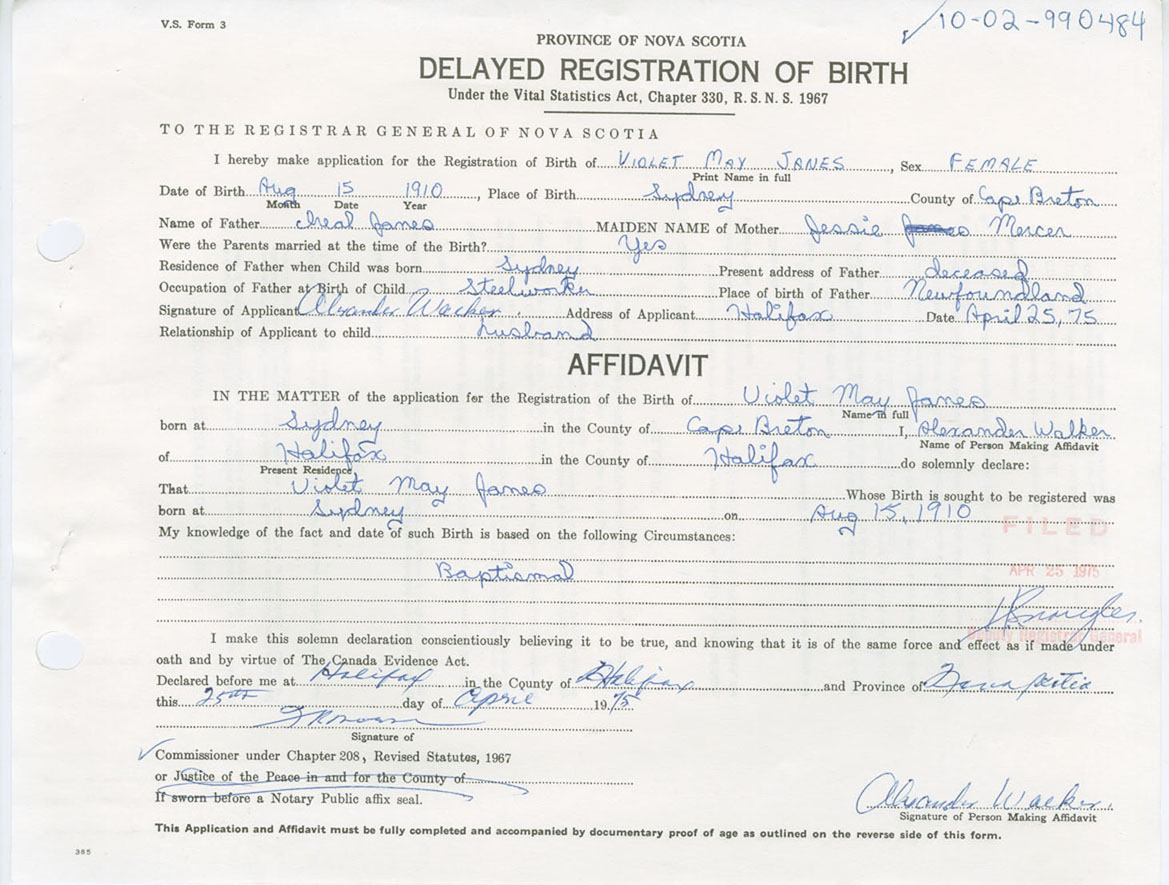 V.S. Form 3
10-02-990484
PROVINCE OF NOVA SCOTIA
DELAYED REGISTRATION OF BIRTH
Under the Vital Statistics Act, Chapter 330, R.S.N.S. 1967
TO THE REGISTRAR GENERAL OF NOVA SCOTIA
I hereby make application for the Registration of Birth of VIOLET MAY JANES, Sex FEMALE
Print Name in full
Date of Birth Aug 15 1910, Place of Birth Sydney County of Cape Breton
Month Date Year
Name of Father Janes MAIDEN NAME of Mother Jessie Mercer
Were the Parents married at the time of the Birth? Yes
Residence of Father when Child was born Sydney Present address of Father deceased
Occupation of Father at Birth of Child Steelworker Place of birth of Father Newfoundland
Signature of Applicant Alexander Walker Address of Applicant Halifax Date April 25, 75
Relationship of Applicant to child husband
AFFIDAVIT
IN THE MATTER of the application for the Registration of the Birth of Violet May Janes
Name in full
born at Sydney in the County of Cape Breton I, Alexander Walker
Name of Person Making Affidavit
of Halifax in the County of Halifax do solemnly declare:
Present Residence
That Violet May Janes Whose Birth is sought to be registered was
born at Sydney on Aug 15, 1910
FILED
My knowledge of the fact and date of such Birth is based on the following Circumstances:
Baptismal
APR 25 1975
Deputy Registrar General
I make this solemn declaration conscientiously believing it to be true, and knowing that it is of the same force and effect as if made under
oath and by virtue of The Canada Evidence Act.
Declared before me at Halifax in the County of Halifax and Province of Nova Scotia
this 25th day of April 1975
Signature of
Commissioner under Chapter 208, Revised Statutes, 1967
or Justice of the Peace in and for the County of
If sworn before a Notary Public affix seal.
Alexander Walker
Signature of Person Making Affidavit
This Application and Affidavit must be fully completed and accompanied by documentary proof of age as outlined on the reverse side of this form.
385